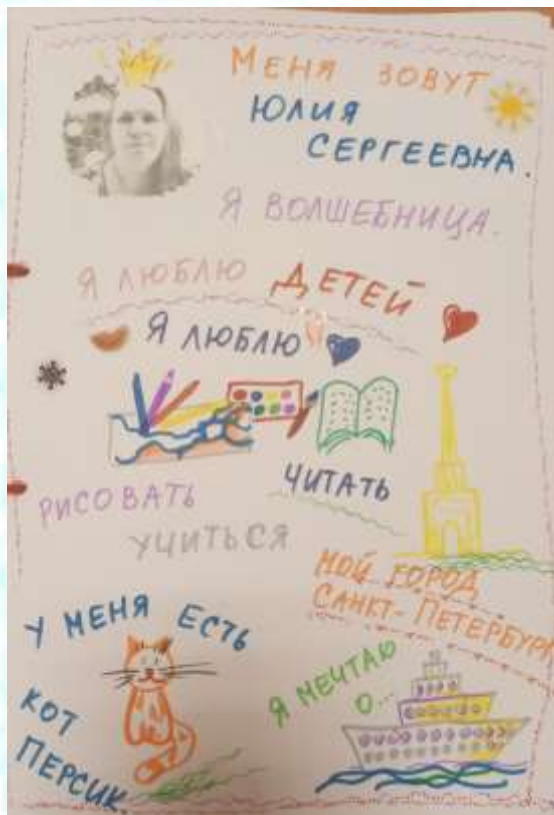 МЕНЯ ЗОВУТ
ЮЛИЯ
СЕРГЕЕВНА.
Я ВОЛШЕБНИЦА.
Я ЛЮБЛЮ ДЕТЕЙ
Я ЛЮБЛЮ
ЧИТАТЬ
РИСОВАТЬ
УЧИТЬСЯ
МОЙ ГОРОД
САНКТ-ПЕТЕРБУРГ
У МЕНЯ ЕСТЬ
КОТ
ПЕРСИК.
Я МЕЧТАЮ
О...